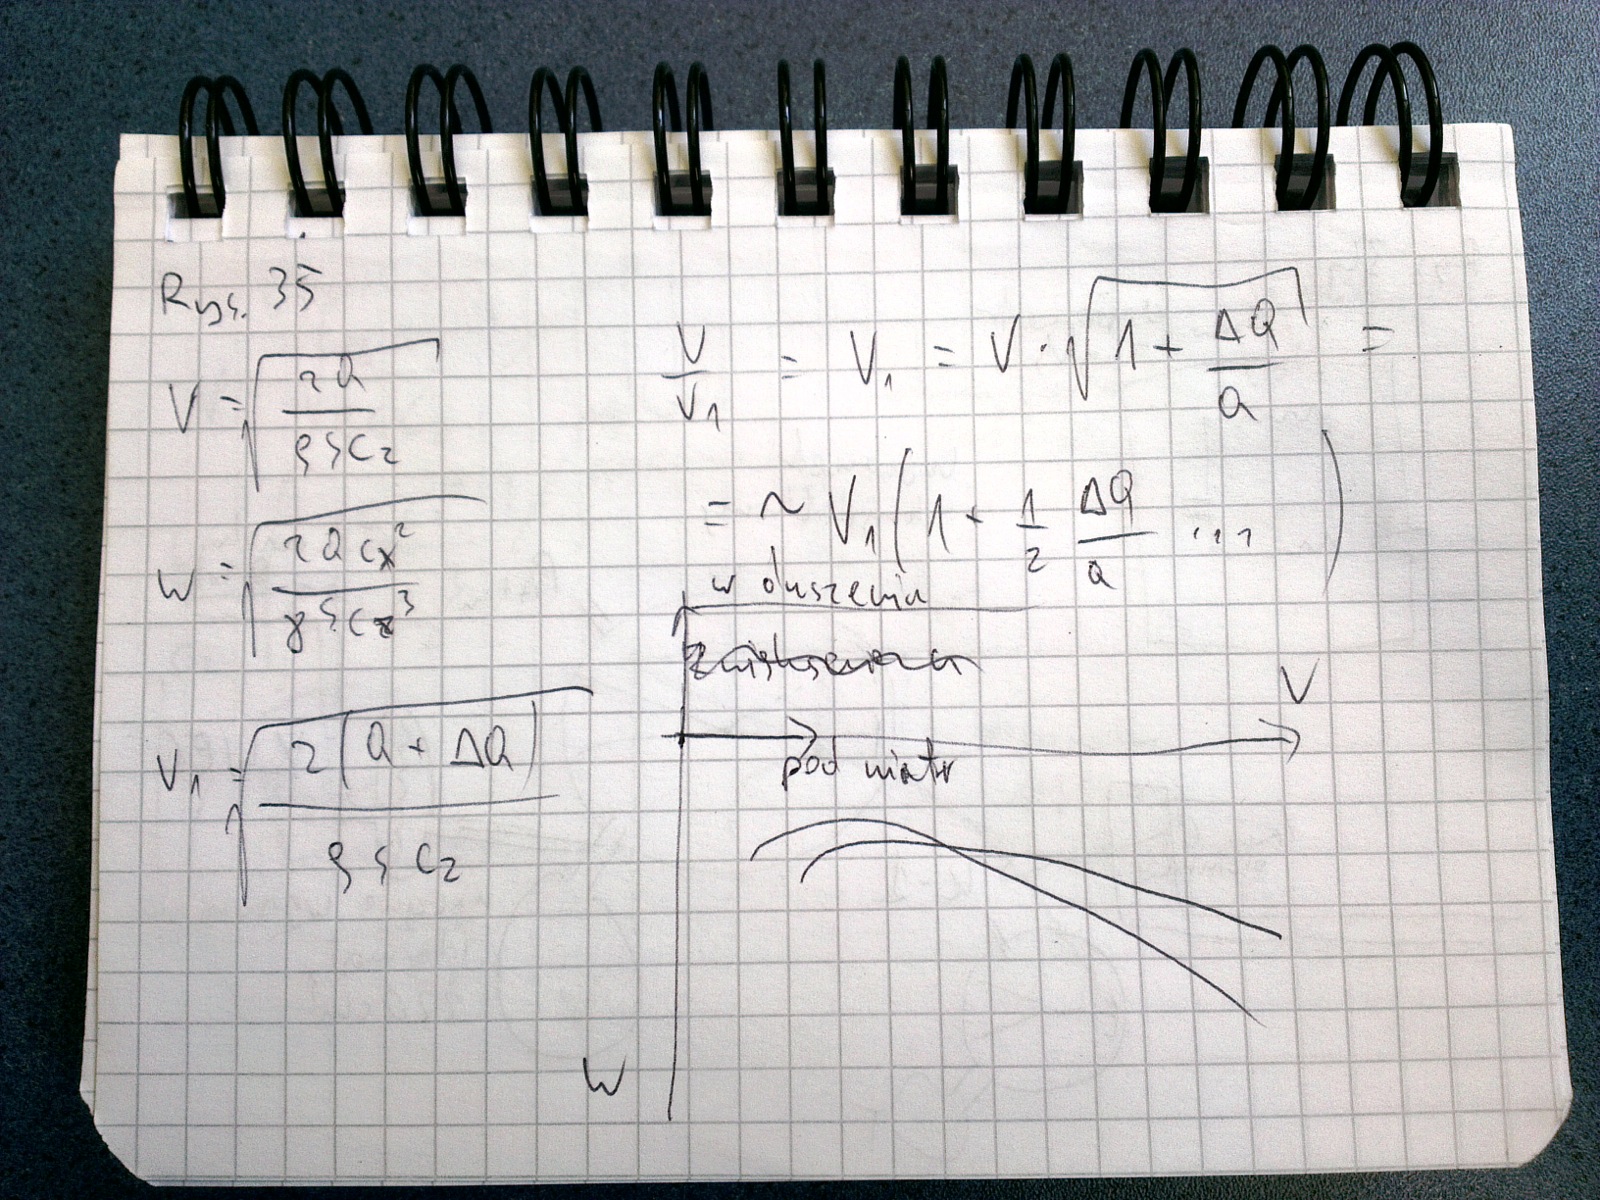 Rys. 35
V = √(2Q / ρSCz)
w = √(2QCx² / ρSCz³)
V₁ = √(2(Q + ΔQ) / ρSCz)
V / V₁ = V₁ = V · √(1 + ΔQ / Q) =
= ~ V₁ (1 + 1/2 ΔQ/Q ...)
w duszeniu
V
pod wiatr
W